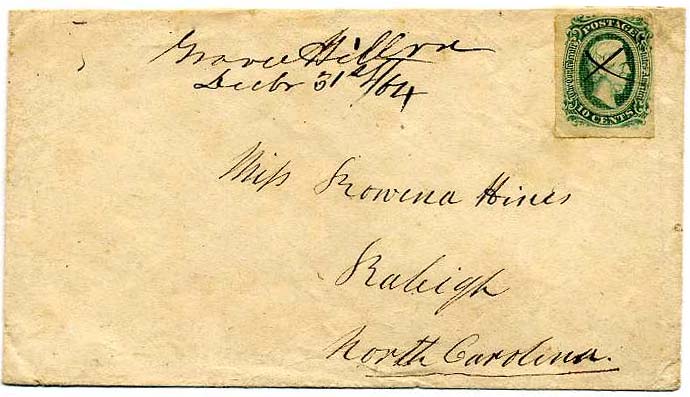 Grove Hill Va
Decbr 31st/64
POSTAGE
The Confederate States of America
10 CENTS
Miss Rowena Hines
Raleigh
North Carolina.